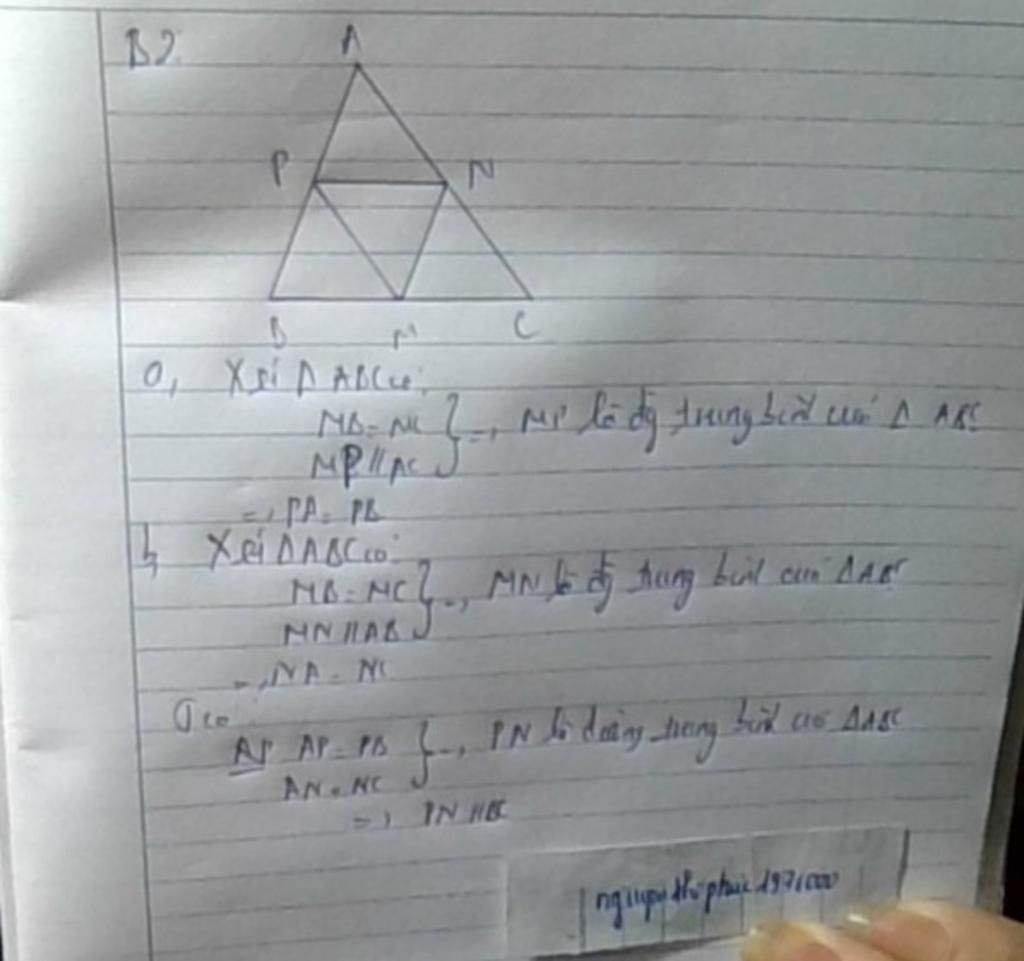 B2.
A
P N
B M C
a, Xét Δ ABC có:
MB = MC } => MP là đg trung bình của Δ ABC
MP // AC
=> PA = PB
b, Xét ΔABC có:
MB = MC } => MN là đg trung bình của ΔABC
MN // AB
=> NA = NC
Ta có:
AP AP = PB } => PN là đường trung bình của ΔABC
AN = NC
=> PN // BC